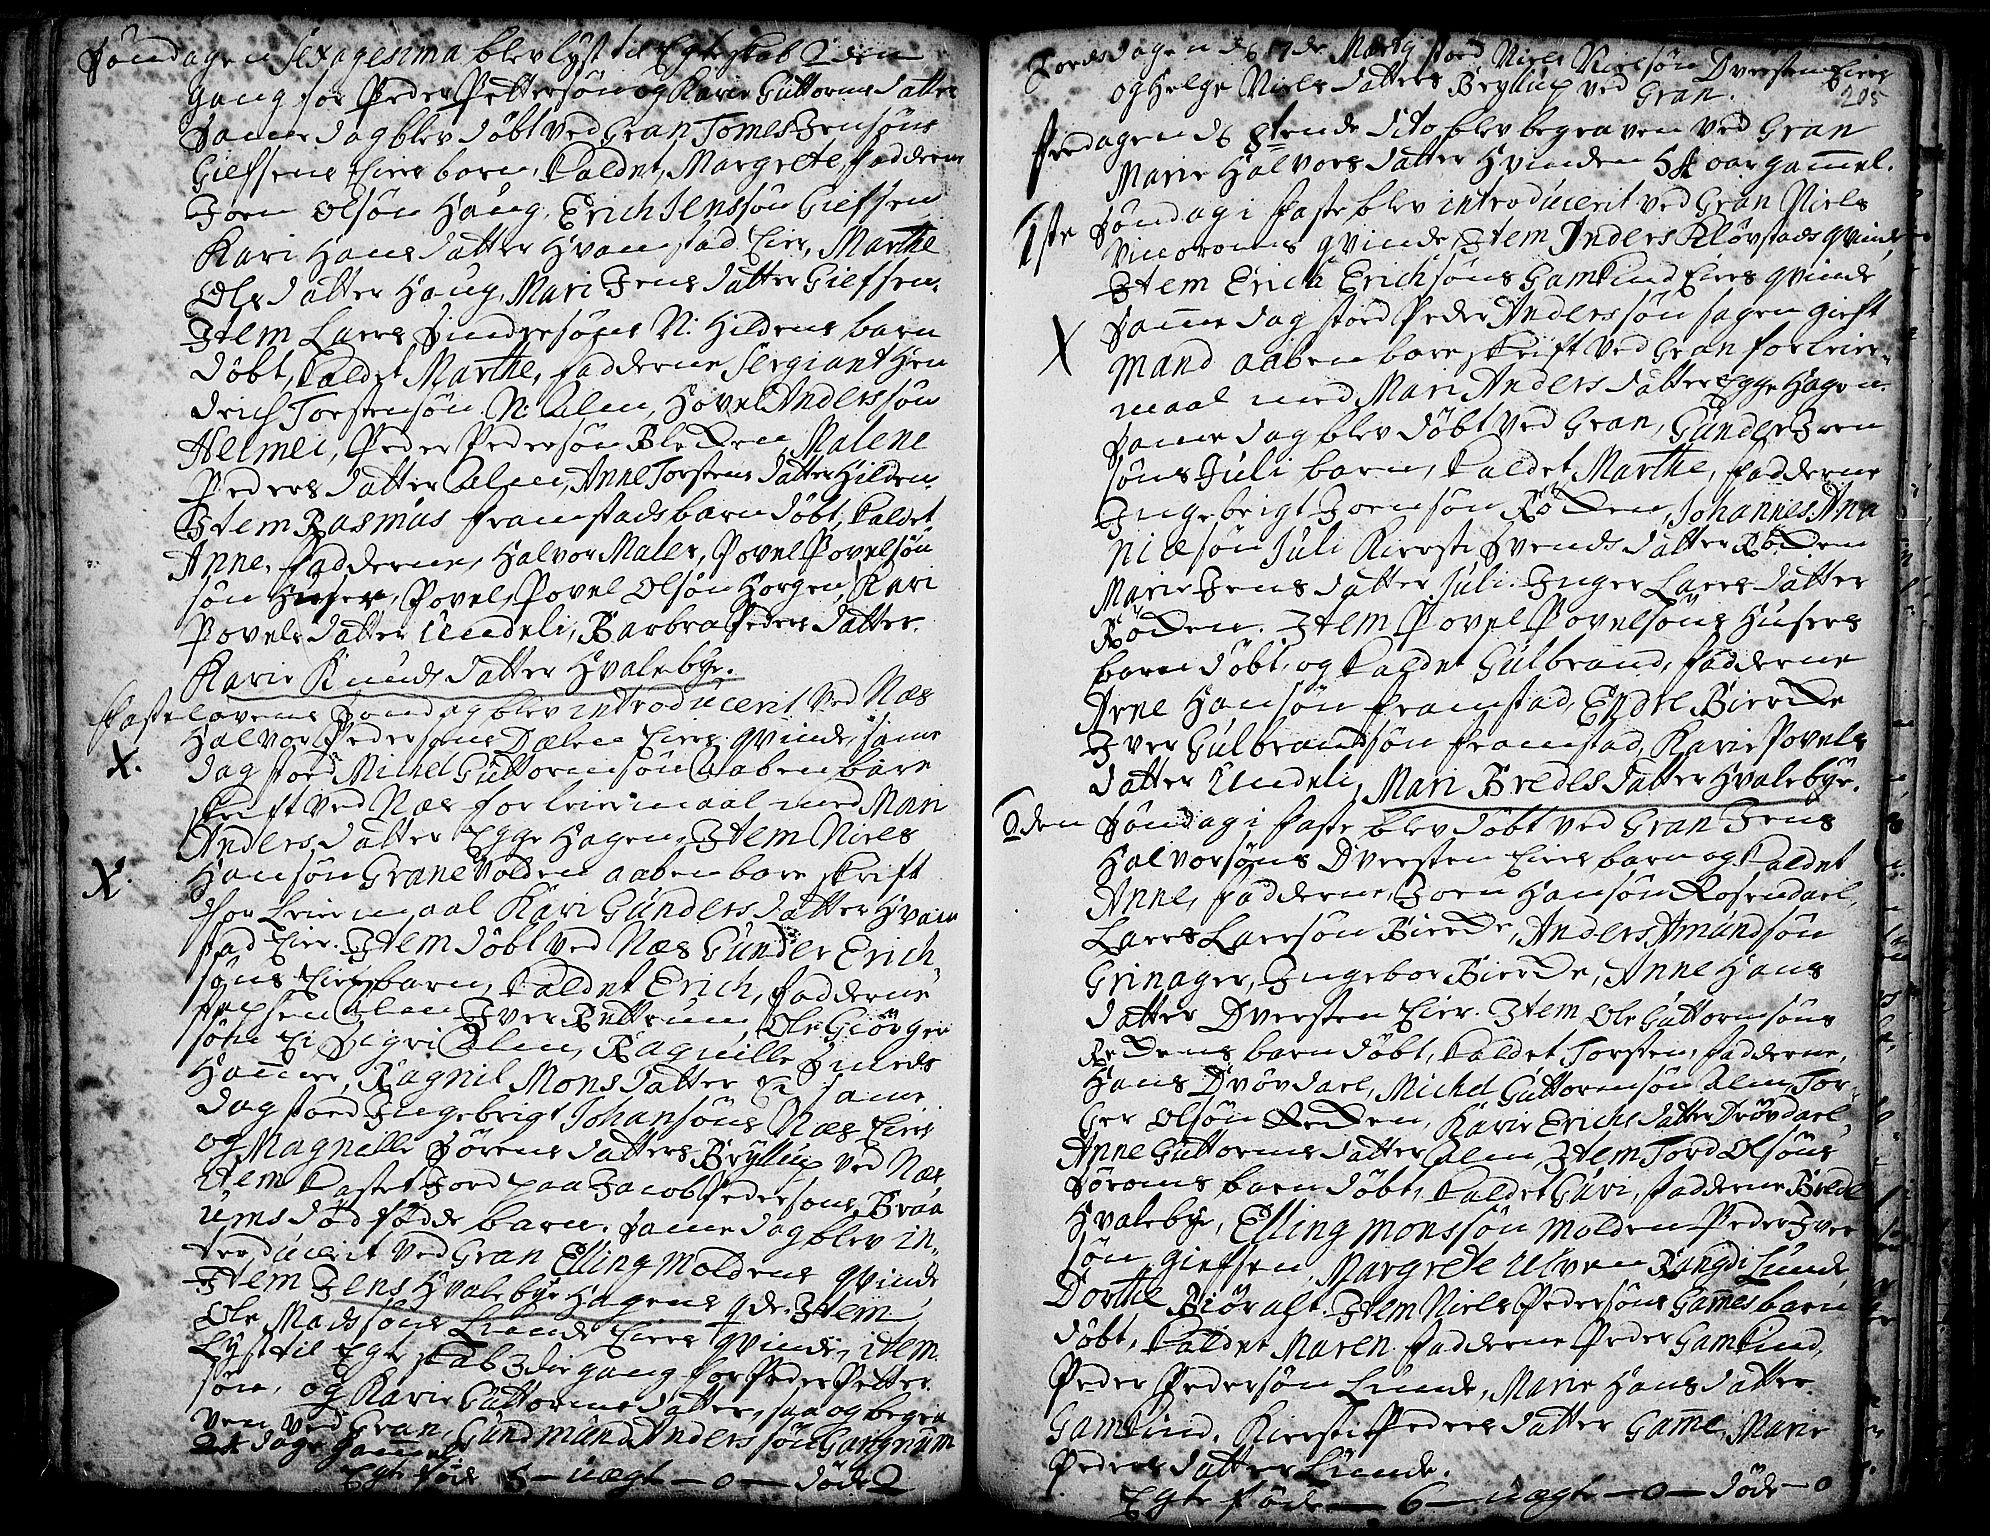 Søndagen Sexagesima blev lyst til Egteskab 2den
gang for Peder Pettersøn og Karie Guttorms datter
Samme dag blev døbt ved Gran Tomes Jensøns
Giefsens Eiers barn, kaldet, Margrete, fadderne
Joen Olsøn Haug, Erich Jenssøn Giefsen
Kari Hans datter Hvamstad Eier, Marthe
Ols datter Haug, Mari Jens datter Giefsen.
Item Lars Sindresøns N: Hildens barn
døbt, kaldet Marthe, fadderne Sergiant Hen
drich Torstensøn N: Alm, Hovel Anderssøn
Helmei, Peder Pedersøn Bledden, Malene
Peders datter Alm, Anne Torstens datter Hilden.
Item Rasmus Framstads barn døbt, kaldet
Anne, fadderne, Halvor Maler, Povel Povelsøn
søn Huser, Povel, Povel Olsøn Horgen, Kari
Povels datter Undeli, Barbra Peders datter.
Karie Knuds datter Hvalebye.
Fastelavens Søndag blev introducerit ved Næs
Halvor Pedersøns Dælen Eiers qvinde, same
dag stod Michel Guttormsøn aabenbare
skrift ved Næs for leiermaal med Mari
X.
Anders datter Egge Hagen, Item Niels
Hansøn Granevolden aabenbare skrift
X.
for Leiermaal Kari Gunders datter Hvam
stad Eier. Item døbt ved Næs Gunder Erich
søns Eiers barn, kaldet Erich, fadderne
Alm Iver Rettrum, Ole Giørger
søn Ei Sigri Alm, Ragnille Smeds
Hammer, Ragnil Mons datter same
dag stod Ingebrigt Johansøns Næs Eiers
og Magnille Sørens datters Bryllup ved Næs
item kastet Jord paa Jacob Pedersøns Braa
ums død fødde barn. Samme dag blev in
troducerit ved Gran Elling Moldens qvinde
Item Jens Hvalebye Hagens qde. Item
Ole Madssøns Lunde Eiers qvinde, item
Lyst til Egteskab 3die gang for Peder Petter
søn, og Karie Guttorms datter, saa og begra
ven ved Gran, Gundmund Anderssøn Gangnum
dage gammel
Egte fødde 5 – uægt – 0 – døde 2
Torsdagen d. 7de Marty stod Niels Nielsøn Dversten Eiers
og Helge Niels datters Bryllup ved Gran.
205
Fredagen d. 8tende dito blev begraven ved Gran
Marie Halvors datter Hvinden aar gammel.
1ste Søndag i Faste blev introducerit ved Gran Niels
Vinoroms qvinde, Item Anders Kløvstads qvinde
Item Erich Erichsøns Gamkind Eiers qvinde
Samme dag stod Peder Anderssøn Hagen gieft
X
mand aabenbare skrift ved Gran for leier
maal med Mari Anders datter Egge Hagen.
Samme dag blev døbt ved Gran, Gunder Joen
søns Juli barn, kaldet, Marthe, fadderne
Ingebrigt Joensøn Rødden, Johannes Ann
nielsøn Juli Kiersti Svends datter Rødden
Marie Jens datter Juli. Inger Lars datter
Rødden. Item Povel Povelsøns Husers
barn døbt, og kaldet Gulbrand, fadderne
Arne Hansøn Framstad, Endre Bierde
Iver Gulbrandsøn Framstad, Karie Povels
datter Undeli, Mari Bredes datter Hvalebye.
2den Søndag i Faste blev døbt ved Gran Jens
Halvorsøns Dversten Eiers barn og kaldet
Anne, fadderne, Joen Hansøn Rosendael,
Lars Larsøn Bierde, Anders Amundsøn
Grinager, Ingebor Bierde, Anne Hans
datter Dversten Eier. Item Ole Guttormsøns
Reddens barn døbt, kaldet Torsten, fadderne,
Hans Drøvdael, Michel Guttormsøn Alm, Tor
ger Olsøn Redden, Karie Erichs datter Drøvdael,
Anne Guttorms datter Alm, Item Tord Olsøns
Sørums barn døbt, kaldet Guri, fadderne Brede
Hvalebye, Elling Monssøn Molden Peder Iver
søn Giefsen, Margrete Ulven Rangdi Lunde
Dorthe Biøralt. Item Niels Pedersøns Games barn
døbt, kaldet Maren, fadderne Peder Gamkind,
Peder Pedersøn Lunde, Marie Hans datter
Gamkind, Kiersti Peders datter Game, Marie
Peders datter Lunde.
Egte fødde – 6 – uægte – 0 – døde – 0